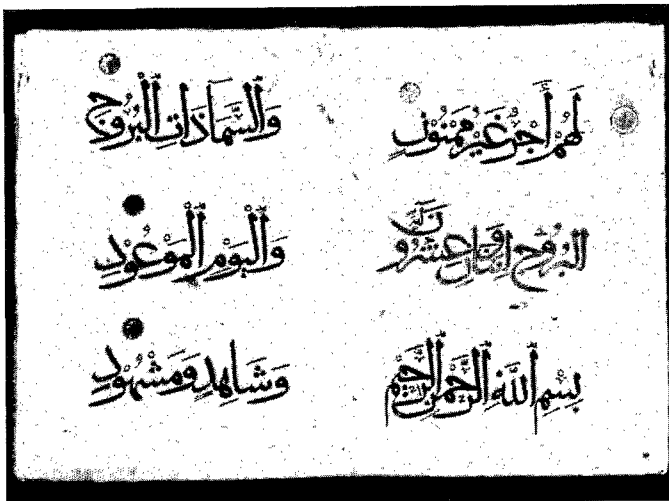 لَهُمْ أَجْرٌ غَيْرُ مَمْنُونٍ
الْبُرُوج اثنان وعشرون
بِسْمِ اللَّهِ الرَّحْمٰنِ الرَّحِيْمِ
وَالسَّمَا ذَاتِ الْبُرُوْجِ
وَالْيَوْمِ الْمَوْعُوْدِ
وَشَاهِدٍ وَمَشْهُوْدٍ